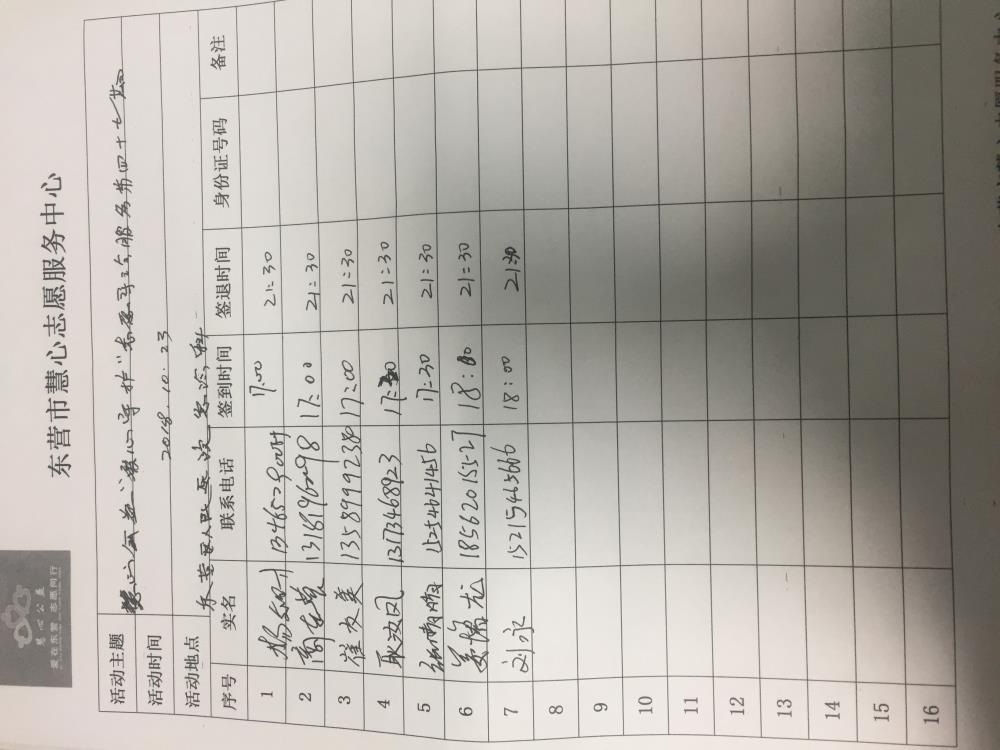 慧心公益
爱在东营 志愿同行
东营市慧心志愿服务中心
活动主题 慧心公益"爱心守护"志愿者服务第四十七期
活动时间 2018.10.23
活动地点 东营区人民医院
序号 实名 联系电话 签到时间 签退时间 身份证号码 备注
1 17:00 21:30
2 17:00 21:30
3 崔文美 13589999238 17:00 21:30
4 耿汝凤 21:30
5 15254641456 17:30 21:30
6 姜 龙 18562015527 18:00 21:30
7 刘永 15215465666 18:00 21:30
8
9
10
11
12
13
14
15
16